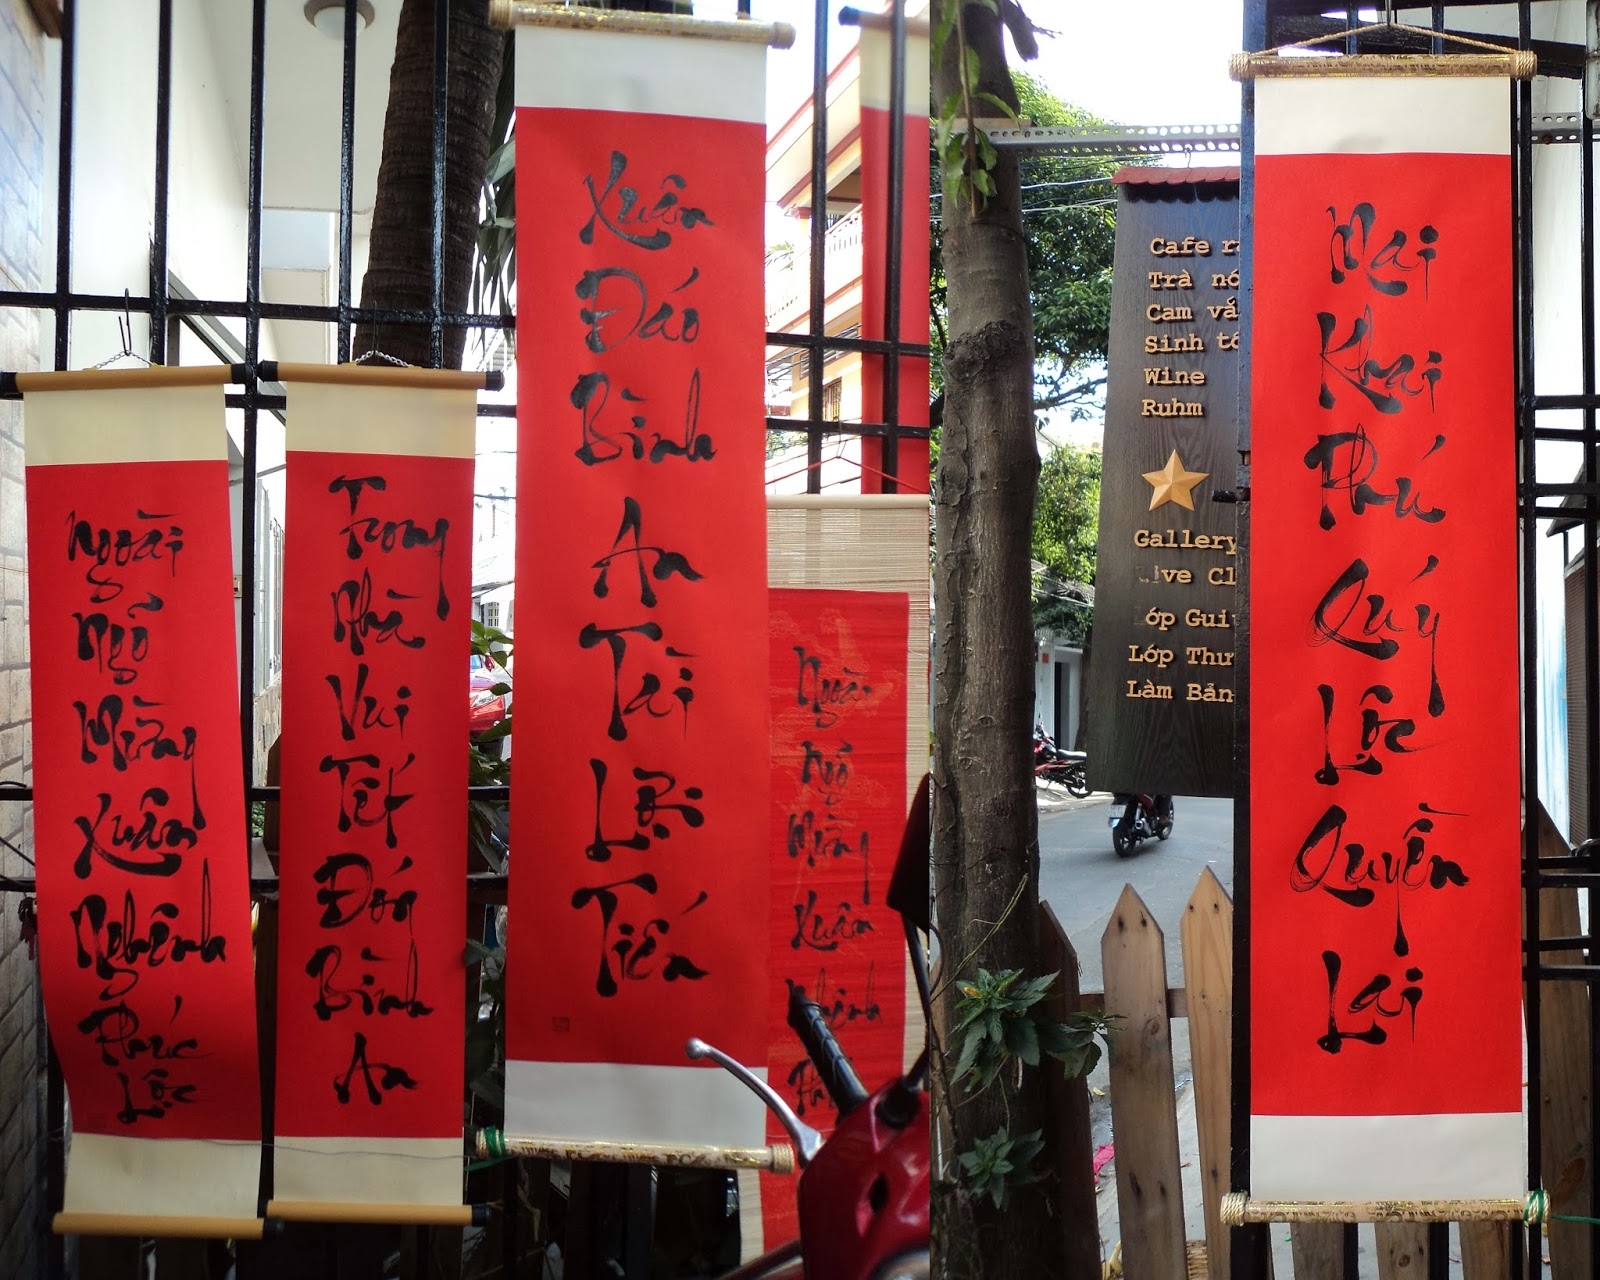 Ngoài
Ngõ
Mừng
Xuân
Nghênh
Phúc
Lộc
Trong
Nhà
Vui
Tết
Đón
Bình
An
Xuân
Đáo
Bình
An
Tài
Lợi
Tiến
Ngoài
Ngõ
Mừng
Xuân
Nghênh
Cafe
Trà
Cam
Sinh
Wine
Ruhm
Gallery
Live
Lớp
Lớp
Làm
Mai
Khai
Phú
Quý
Lộc
Quyền
Lai